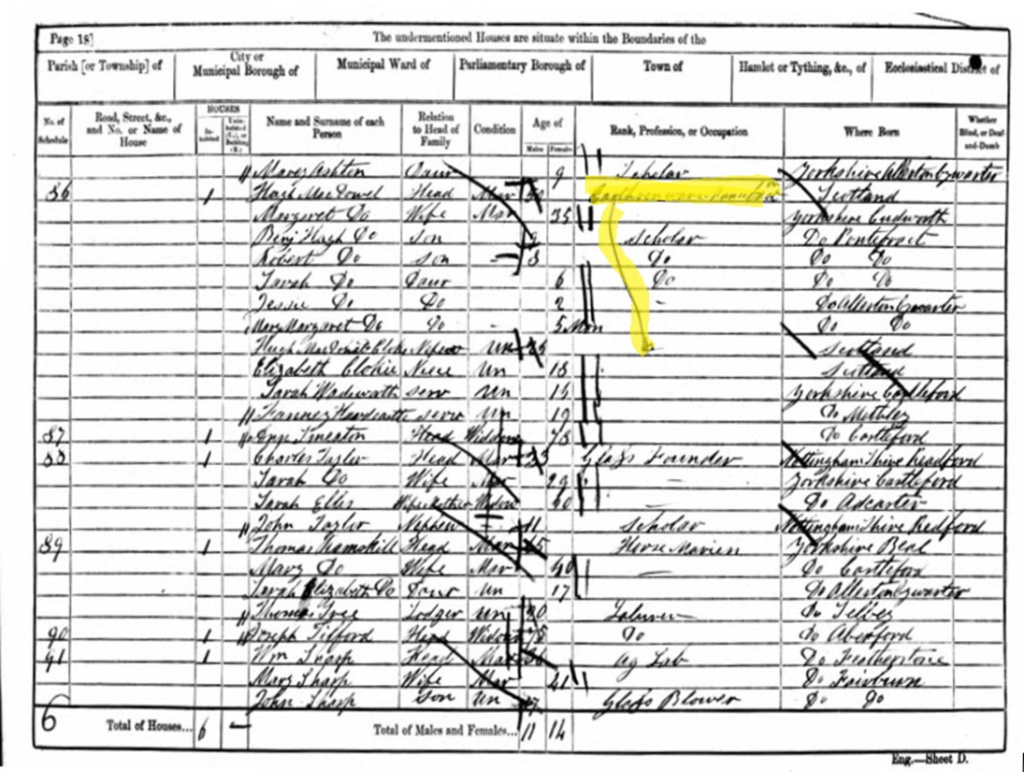 Page 18]
The undermentioned Houses are situate within the Boundaries of the
Parish [or Township] of City or Municipal Borough of Municipal Ward of Parliamentary Borough of Town of Hamlet or Tything, &c., of Ecclesiastical District of
No. of Schedule Road, Street, &c., and No. or Name of House HOUSES Inhabited Uninhabited (U.), or Building (B.) Name and Surname of each Person Relation to Head of Family Condition Age of Males Females Rank, Profession, or Occupation Where Born Whether Blind, or Deaf-and-Dumb
Mary Ashton Daur 9 Scholar Yorkshire Allerton Bywater
86 1 Hugh MacDowel Head Mar Scotland
Margaret Do Wife Mar 35 Yorkshire Cudworth
Benj Hugh Do son 9 Scholar Do Pontefract
Robert Do son - 8 Do Do Do
Sarah Do Daur 6 Do Do Do
Jessie Do Do 2 - Do Allerton Bywater
Mary Margaret Do Do - 5 Mon Do Do
Hugh Nephew Un Scotland
Elizabeth Clokie Niece Un 18 Scotland
Sarah Wadsworth serv Un 15 Yorkshire Castleford
Fanney Hardcastle serv Un 19 Do Methley
87 1 Smeaton Head Widow 78 Do Castleford
88 1 Charles Taylor Head Mar Glass Founder Nottinghamshire Redford
Sarah Do Wife Mar 29 - Yorkshire Castleford
Sarah Ellis Wifes Mother Widow 60 - Do
John Taylor Nephew - 11 Scholar Nottinghamshire Redford
89 1 Thomas Ramskill Head Mar 45 Horse Marien Yorkshire Beal
Mary Do Wife Mar 40 - Do Castleford
Sarah Elizabeth Do Daur Un 17 Do Allerton Bywater
Thomas Lodger Un 20 Labourer Do Selby
90 1 Joseph Tilford Head Widower 75 Do Do Aberford
91 1 Wm Sharp Head Mar Ag Lab Do Featherstone
Mary Sharp Wife Mar 41 Do Fairburn
John Sharp Son Un 17 Glass Blower Do Do
6 Total of Houses... 6 - Total of Males and Females... 11 14
Eng.—Sheet D.